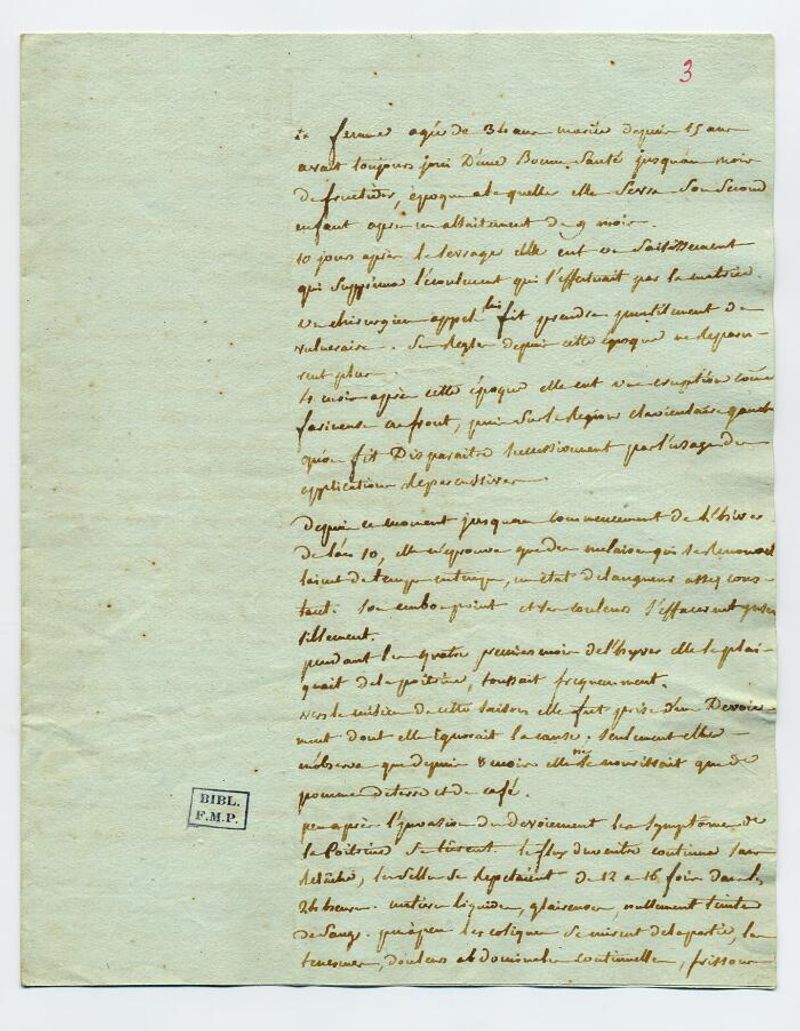 3
femme agée de 34 ans mariée depuis 15 ans
avait toujours joui D'une Bonne Santé jusqu'au mois
de fructidor, époque a laquelle elle Sevra Son Second
enfant après un allaitement de 9 mois.
10 jours après le sevrage elle eut un Saisissement
qui Supprima l'écoulement qui s'effectuait par la matrice.
un chirurgien appel lui fit prendre de
vulneraire. Ses Regles depuis cette époque ne Reparu-
rent plus.
4 mois après cette époque elle eut une eruption come
farineuse au front, puis Sur la Region claviculaire gauche
qu'on fit Disparaitre Successivement par l'usage des
applications Repercussives
depuis ce moment jusqu'au commencement de l'hiver
de l'an 10, elle n'éprouva que des malaises qui se Renouvel
laient de temps en temps, un état de langueur assez cons-
tant. Son embonpoint et ses couleurs s'effacerent
sillement.
pendant les quatre premiers mois de l'hyver elle se plai-
gnait de la poitrine, toussait frequemment.
vers le milieu de cette saison elle fut prise d'un Devoie-
ment dont elle ignorait la cause. seulement elle
m'observa que depuis 8 mois elle ne se nourissait que de
pomme de terre et de café.
peu après l'invasion du devoiement les symptômes de
la Poitrine Se turent. le flux du ventre continua sans
Relâche, les selles se Repetaient de 12 a 16 fois dans les
24 heures. matieres liquides, glaireuses, nullement teintes
de Sang. peu à peu les coliques se mirent de la partie, les
tenesmes, douleurs abdominales continuelles, frissons
BIBL.
F.M.P.